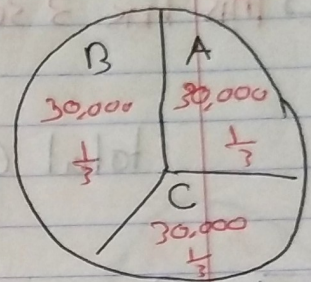 B
30,000
1/3
A
30,000
1/3
C
30,000
1/3